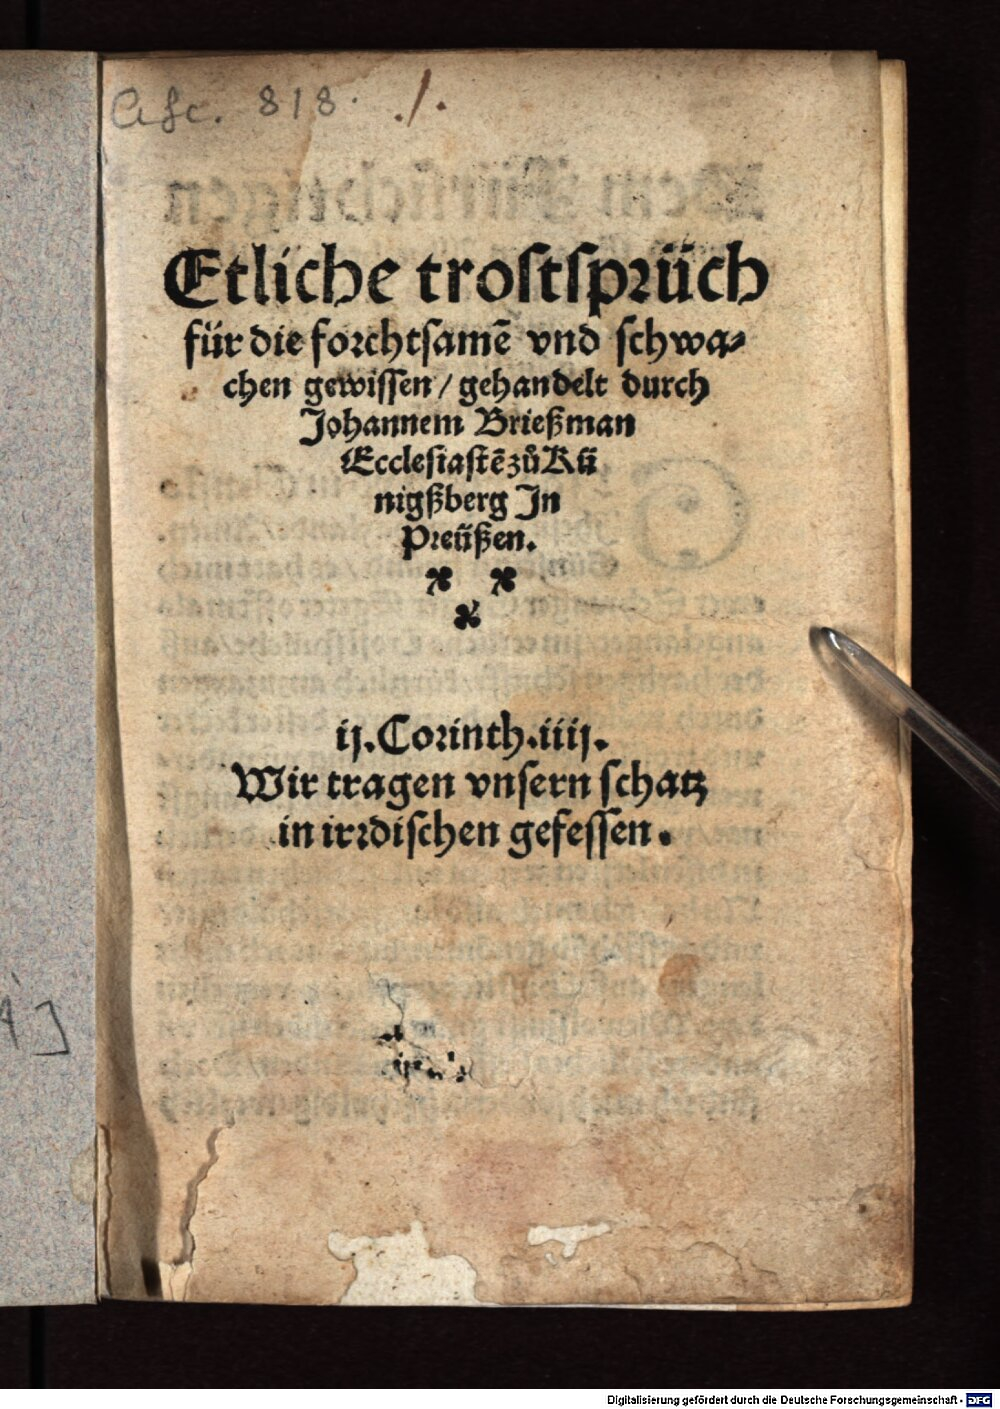 Asc. 818. ./.
Etliche trostsprüch
für die forchtsamẽ vnd schwa⸗
chen gewissen / gehandelt durch
Johannem Brießman
Ecclesiastẽ zů Kü
nigßberg Jn
Preüßen.
ij. Corinth. iiij.
Wir tragen vnsern schatz
in irrdischen gefessen.
Digitalisierung gefördert durch die Deutsche Forschungsgemeinschaft - DFG